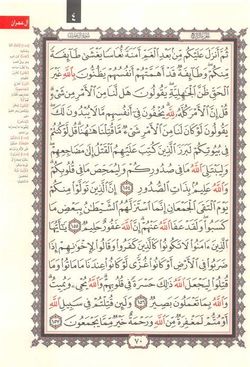 آل عمران
٤
ثُمَّ أَنزَلَ عَلَيْكُم مِّنۢ بَعْدِ ٱلْغَمِّ أَمَنَةً نُّعَاسًا يَغْشَىٰ طَآئِفَةً
مِّنكُمْ ۖ وَطَآئِفَةٌ قَدْ أَهَمَّتْهُمْ أَنفُسُهُمْ يَظُنُّونَ بِٱللَّهِ غَيْرَ
ٱلْحَقِّ ظَنَّ ٱلْجَٰهِلِيَّةِ ۖ يَقُولُونَ هَل لَّنَا مِنَ ٱلْأَمْرِ مِن شَىْءٍ ۗ
قُلْ إِنَّ ٱلْأَمْرَ كُلَّهُۥ لِلَّهِ ۗ يُخْفُونَ فِىٓ أَنفُسِهِم مَّا لَا يُبْدُونَ لَكَ ۖ
يَقُولُونَ لَوْ كَانَ لَنَا مِنَ ٱلْأَمْرِ شَىْءٌ مَّا قُتِلْنَا هَٰهُنَا ۗ قُل لَّوْ كُنتُمْ
فِى بُيُوتِكُمْ لَبَرَزَ ٱلَّذِينَ كُتِبَ عَلَيْهِمُ ٱلْقَتْلُ إِلَىٰ مَضَاجِعِهِمْ ۖ
وَلِيَبْتَلِىَ ٱللَّهُ مَا فِى صُدُورِكُمْ وَلِيُمَحِّصَ مَا فِى قُلُوبِكُمْ ۗ
وَٱللَّهُ عَلِيمٌۢ بِذَاتِ ٱلصُّدُورِ ١٥٤ إِنَّ ٱلَّذِينَ تَوَلَّوْا۟ مِنكُمْ
يَوْمَ ٱلْتَقَى ٱلْجَمْعَانِ إِنَّمَا ٱسْتَزَلَّهُمُ ٱلشَّيْطَٰنُ بِبَعْضِ مَا
كَسَبُوا۟ ۖ وَلَقَدْ عَفَا ٱللَّهُ عَنْهُمْ ۗ إِنَّ ٱللَّهَ غَفُورٌ حَلِيمٌ ١٥٥ يَٰٓأَيُّهَا
ٱلَّذِينَ ءَامَنُوا۟ لَا تَكُونُوا۟ كَٱلَّذِينَ كَفَرُوا۟ وَقَالُوا۟ لِإِخْوَٰنِهِمْ إِذَا
ضَرَبُوا۟ فِى ٱلْأَرْضِ أَوْ كَانُوا۟ غُزًّى لَّوْ كَانُوا۟ عِندَنَا مَا مَاتُوا۟ وَمَا
قُتِلُوا۟ لِيَجْعَلَ ٱللَّهُ ذَٰلِكَ حَسْرَةً فِى قُلُوبِهِمْ ۗ وَٱللَّهُ يُحْىِۦ وَيُمِيتُ ۗ
وَٱللَّهُ بِمَا تَعْمَلُونَ بَصِيرٌ ١٥٦ وَلَئِن قُتِلْتُمْ فِى سَبِيلِ ٱللَّهِ
أَوْ مُتُّمْ لَمَغْفِرَةٌ مِّنَ ٱللَّهِ وَرَحْمَةٌ خَيْرٌ مِّمَّا يَجْمَعُونَ ١٥٧
٧٠